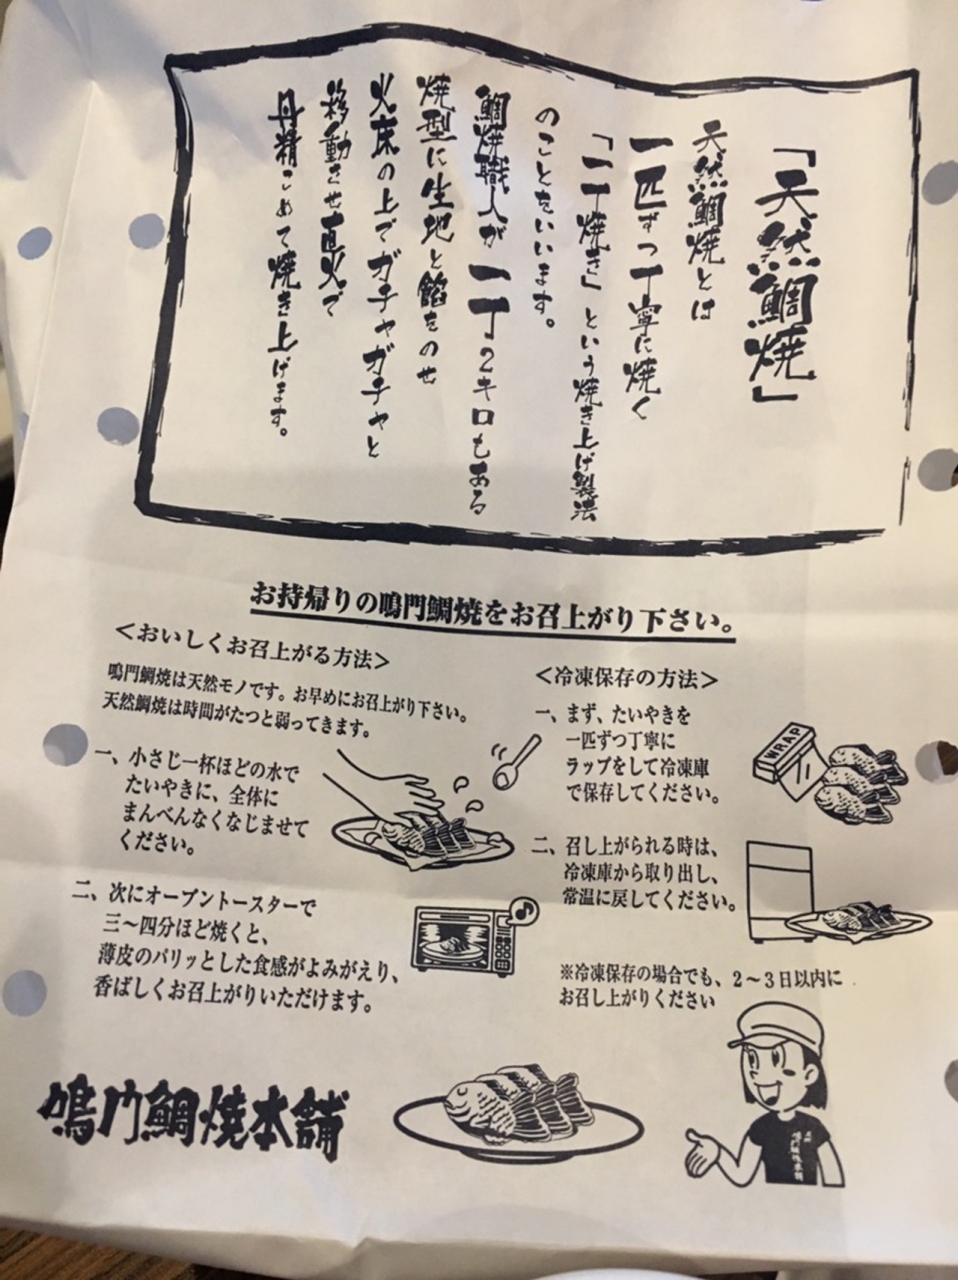 「天然鯛焼」
天然鯛焼とは
一匹ずつ丁寧に焼く
「一丁焼き」という焼き上げ製法
のことをいいます。
鯛焼職人が一丁2キロもある
焼型に生地と餡をのせ
火床の上でガチャガチャと
移動させ直火で
丹精こめて焼き上げます。
お持帰りの鳴門鯛焼をお召上がり下さい。
＜おいしくお召上がる方法＞
鳴門鯛焼は天然モノです。お早めにお召上がり下さい。
天然鯛焼は時間がたつと弱ってきます。
一、小さじ一杯ほどの水で
たいやきに、全体に
まんべんなくなじませて
ください。
二、次にオーブントースターで
三〜四分ほど焼くと、
薄皮のパリッとした食感がよみがえり、
香ばしくお召上がりいただけます。
＜冷凍保存の方法＞
一、まず、たいやきを
一匹ずつ丁寧に
ラップをして冷凍庫
で保存してください。
WRAP
二、召し上がられる時は、
冷凍庫から取り出し、
常温に戻してください。
※冷凍保存の場合でも、2〜3日以内に
お召し上がりください
鳴門鯛焼本舗
鳴門鯛焼本舗